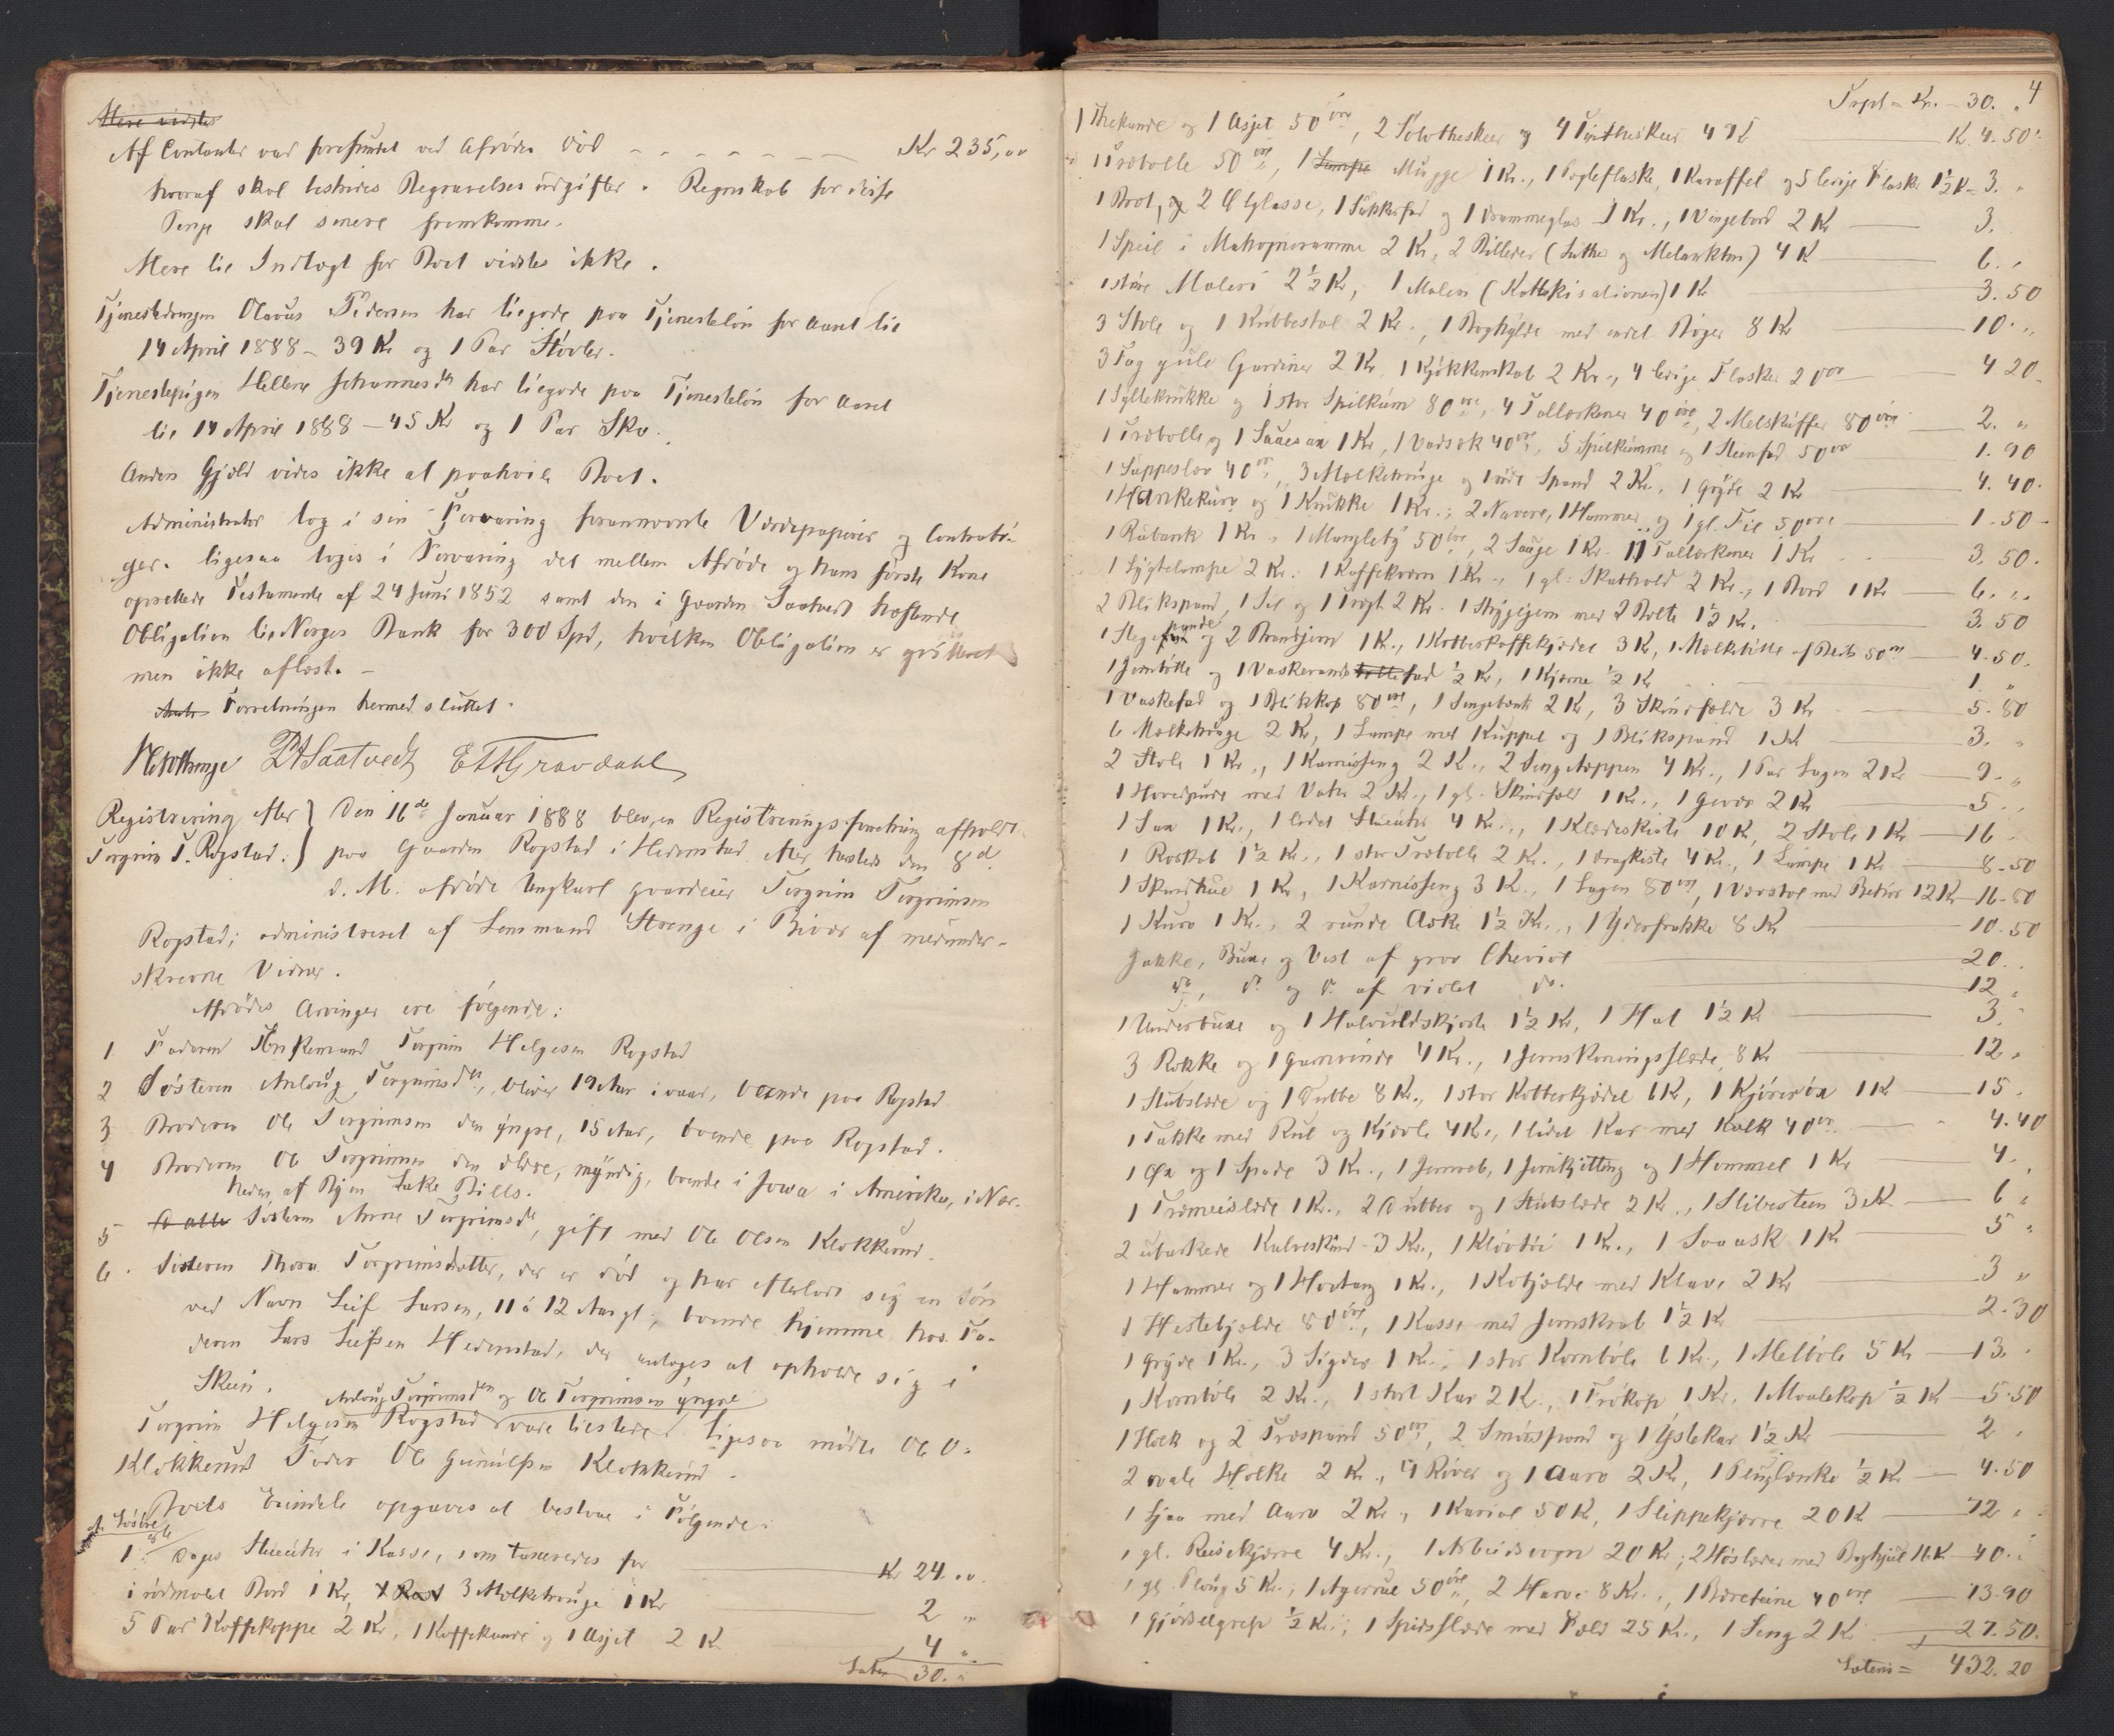 Mere vidstes
Af Contanter var forefundet ved Afdødes Død - - - - - - - Kr 235,00
hvoraf skal bestrides Begravelsesudgifter. Regnskab for disse
Penge skal senere fremkomme.
Mere til Indtægt for Boet vidstes ikke.
Tjenestedrengen Olavus Pedersen har tilgode paa Tjenesteløn for Aaret til
14 April 1888 – 39 Kr og 1 Par Støvler.
Tjenestepigen Hellene Johannesdtr har tilgode paa Tjenesteløn for Aaret
til 14 April 1888 – 45 Kr og 1 Par Sko.
Anden Gjæld vides ikke at paahvile Boet.
Administrator tog i sin Forvaring forannævnte Værdipapirer og Contrabø-
ger. ligesaa toges i Forvaring det mellem Afdøde og hans første Kone
oprettede Testamente af 24 Juni 1852 samt den i Gaarden Saatvedt heftende
Obligation til Norges Bank for 300 Spd, hvilken Obligation er qvitteret
men ikke aflæst. –
Forretningen hermed sluttet.
PASaatvedt ETHGravdahl
Registrering efter } Den 16de Januar 1888 blev en Registreringsforretning afholdt
Torgrim T. Rogstad. } paa Gaarden Rogstad i Hedenstad efter den 8d
d. M. afdøde Ungkarl gaardeier Torgrim Torgrimsen
Rogstad; administreret af Lensmand Strenge i af medunder-
skrevne Vidner.
Afdødes Arvinger ere følgende:
1 Faderen Enkemand Torgrim Helgesen Rogstad
2 Søsteren Anlaug Torgrimsdtr, bliver 19 Aar i vaar, boende paa Rogstad
3 Broderen Ole Torgrimsen den yngre, 15 Aar, boende paa Rogstad.
4 Broderen Ole Torgrimsen den ældre, myndig, boende i Jowa i Amerika, i Nær-
heden af Byen Lake Mills.
5 Søsteren Anne Torgrimsdtr, gift med Ole Olsen Klokkerud
6. Søsteren Thora Torgrimsdatter, der er død og har efterladt sig en Søn
ved Navn Leif Larsen, 11 à 12 Aar gl, boende hjemme hos Fa-
deren Lars Leifsen Hedenstad, der antages at opholde sig i
Skien.
Anlaug Torgrimsdtr og Ole Torgrimsen yngre
Torgrim Helgesen Rogstad vare tilstede. Ligesaa mødte Ole O.
Klokkerud Fader Ole Gunulfsen Klokkerud.
Boets Eiendele opgaves at bestaae i Følgende:
A. Løsøre
1 Dages Stueuhr i Kasse, som taxeredes for Kr 24.00.
1 rødmalet Bord 1 Kr, 3 Melketrauge 1 Kr 2 "
5 Par Kaffekoppe 2 Kr, 1 Kaffekande og 1 Asjet 2 Kr 4 "
Lateris 30. "
4
Trpt = Kr. – 30. "
1 Thekande og 1 Asjet 50 øre, 2 Sølvtheskeer og 4 Theskeer 4 Kr Kr 4.50
1 Træbolle 50 øre, 1 Lampe Mugge 1 Kr., 1 Pægleflaske, 1 Karaffel og 5 øvrige Flaske 1½ Kr 3. "
1 Bret, og 2 Ølglasse, 1 Sukkerfad og 1 Drammeglas 1 Kr., 1 Vingebord 2 Kr 3.
1 Speil i Mahogniramme 2 Kr, 2 Billeder (Luther og Melankton) 4 Kr 6. "
1 større Maleri 2½ Kr, 1 Maleri (Kattekisationen) 1 Kr 3.50
3 Stole og 1 Kubbestol 2 Kr., 1 Boghylde med endel Bøger 8 Kr 10. "
3 Fag gule Gardiner 2 Kr, 1 Kjøkkenskab 2 Kr., 4 øvrige Flasker 20 øre 4 20
1 Syltekrukke og 1 stor Spilkum 80 øre, 4 Tallerkener 40 øre, 2 Melskuffer 80 øre 2. "
1 Træbolle og 1 Sauesax 1 Kr, 1 Vadsæk 40 øre, 5 Spilkumme og 1 Steenfad 50 øre 1.90
1 Suppeslev 40 øre, 3 Melketrauge og 1 øde Spand 2 Kr., 1 Gryde 2 Kr 4.40.
1 Hankekurv og 1 Krukke 1 Kr.; 2 Navere, 1 Hammer og 1 gl. Fil 50 øre 1.50
1 Rubank 1 Kr., 1 Mangletøi 50 øre, 2 Sauge 1 Kr. 11 Tallerkener 1 Kr 3.50.
1 Lygtelampe 2 Kr. 1 Kaffekværn 1 Kr., 1 gl: Skathold 2 Kr., 1 Bord 1 Kr 6. "
2 Blikspand, 1 Sil og 1 Tragt 2 Kr. 1 Strygejern med 2 Bolte 1½ Kr. 3.50
1 Stegepande og 2 Brandjern 1 Kr., 1 Kobberkaffekjedel 3 Kr, 1 Melkebøtte af Blik 50 øre 4.50.
1 Jernbøtte og 1 Vaskevandsfad ½ Kr, 1 Kjerne ½ Kr 1. "
1 Vaskefad og 1 Blikkop 80 øre, 1 Sengebænk 2 Kr, 3 Skindfælde 3 Kr 5.80
6 Melketrauge 2 Kr, 1 Lampe med Kuppel og 1 Blikspand 1 Kr 3. "
2 Stole 1 Kr., 1 Karnisseng 2 Kr., 2 Sengetæppen 4 Kr., 1 Par Lagen 2 Kr 9. "
1 Hovedpude med Vahr 2 Kr., 1 gl. Skindfæld 1 Kr., 1 Gevær 2 Kr 5. "
1 Sax 1 Kr., 1 lidet Stueuhr 4 Kr., 1 Klædeskiste 10 Kr, 2 Stole 1 Kr 16 "
1 Roskab 1½ Kr., 1 stor Træbolle 2 Kr., 1 Dragkiste 4 Kr., 1 Lampe 1 Kr 8.50
1 Skindhue 1 Kr, 1 Karnisseng 3 Kr., 1 Lagen 80 øre, 1 Vævstol med Behør 12 Kr 16.80
1 Kurv 1 Kr., 2 runde Aske 1½ Kr., 1 Yderfrakke 8 Kr 10.50
Jakke, Buxe og Vest af grov Cheviot 20.
do, do og do af violet do. 12 "
1 Underbuxe og 1 Halvuldskjorte 1½ Kr, 1 Hat 1½ Kr 3.
3 Rokke og 1 Garnvinde 4 Kr., 1 Jernskoningsslæde 8 Kr 12 "
1 Stutslæde og 1 Dubbe 8 Kr., 1 stor Kobberkjedel 6 Kr, 1 Kjøreøx 1 Kr 15.
1 Takke med Rul og Kjævle 4 Kr., 1 lidet Kar med Kalk 40 øre 4.40
1 Øx og 1 Spade 3 Kr., 1 Jernreb, 1 Jernkjetting og 1 Hammel 1 Kr 4.
1 Træmeislæde 1 Kr., 2 Dubber og 1 Stutslæde 2 Kr., 1 Slibesteen 3 Kr 6 "
2 ubarkede Kalveskind 3 Kr., 1 Kløvtøi 1 Kr., 1 Svaask 1 Kr 5 "
1 Hammer og 1 Hovtang 1 Kr., 1 Kobjælde med Klave 2 Kr 3 "
1 Hestebjælde 80 øre, 1 Kasse med Jernskrab 1½ Kr 2.30
1 Gryde 1 Kr., 3 Sigder 1 Kr., 1 stor Kornbøle 6 Kr., 1 Melbøle 5 Kr 13.
1 Kornbøle 2 Kr., 1 stort Kar 2 Kr., 1 Frøkop 1 Kr, 1 Maalekop ½ Kr 5.50
1 Holk og 2 Træspand 50 øre, 2 Smørspand og 1 Ystekar 1½ Kr 2 "
2 ovale Holke 2 Kr., 4 River og 1 Aarv 2 Kr, 1 Pluglænke ½ Kr 4.50
1 Ljaa med Aarv 2 Kr., 1 Kariol 50 Kr, 1 Slippekjærre 20 Kr 72 "
1 gl. Reisekjærre 4 Kr., 1 Arbeidsvogn 20 Kr; 2 Høslæder med Baghjul 16 Kr 40.
1 gl. Ploug 5 Kr., 1 Agerrul 50 øre, 2 Harve 8 Kr., 1 Bæreteine 40 øre 13.90
1 Gjødselgrep ½ Kr., 1 Spidsslæde med Fæld 25 Kr., 1 Seng 2 Kr 27.50.
Lateris = 432.20